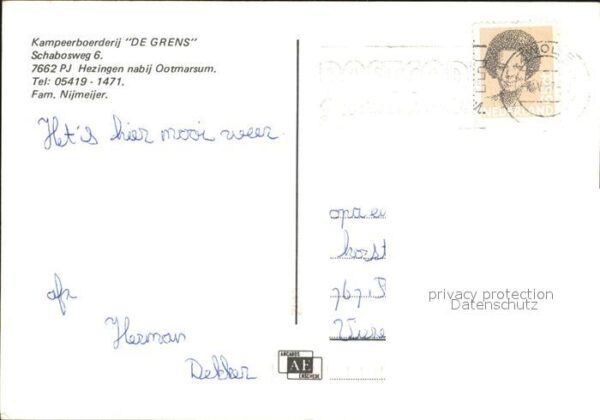 Kampeerboerderij "DE GRENS"
Schabosweg 6.
7662 PJ Hezingen nabij Ootmarsum.
Tel: 05419 - 1471.
Fam. Nijmeijer.
Het is hier mooi weer.
afz
Herman
Dekker
opa e
horst
767
privacy protection
Datenschutz
NEDERLAND
AE
ENSCHEDE